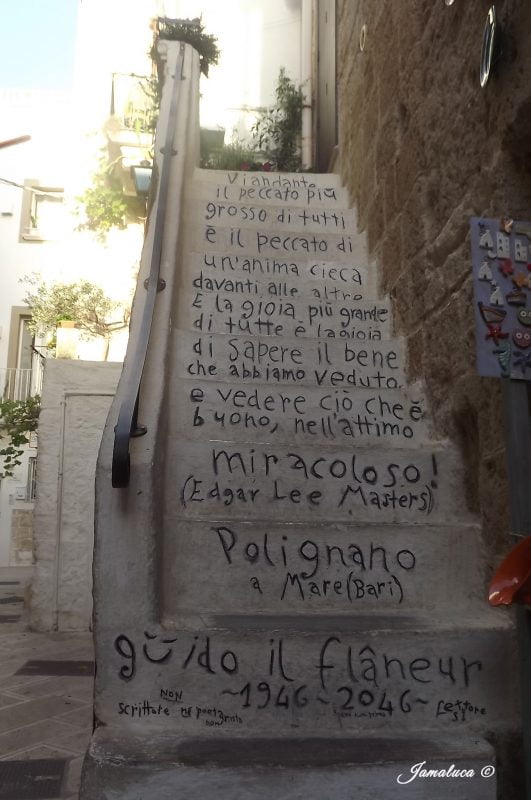 Viandante
il peccato più
grosso di tutti
è il peccato di
un'anima cieca
davanti alle altre
E la gioia più grande
di tutte è la gioia
di sapere il bene
che abbiamo veduto
e vedere ciò che è
buono, nell'attimo
miracoloso!
(Edgar Lee Masters)
Polignano
a Mare (Bari)
guido il flâneur
~1946~2046~
scrittore NON
lettore
SI
Jamaluca ©